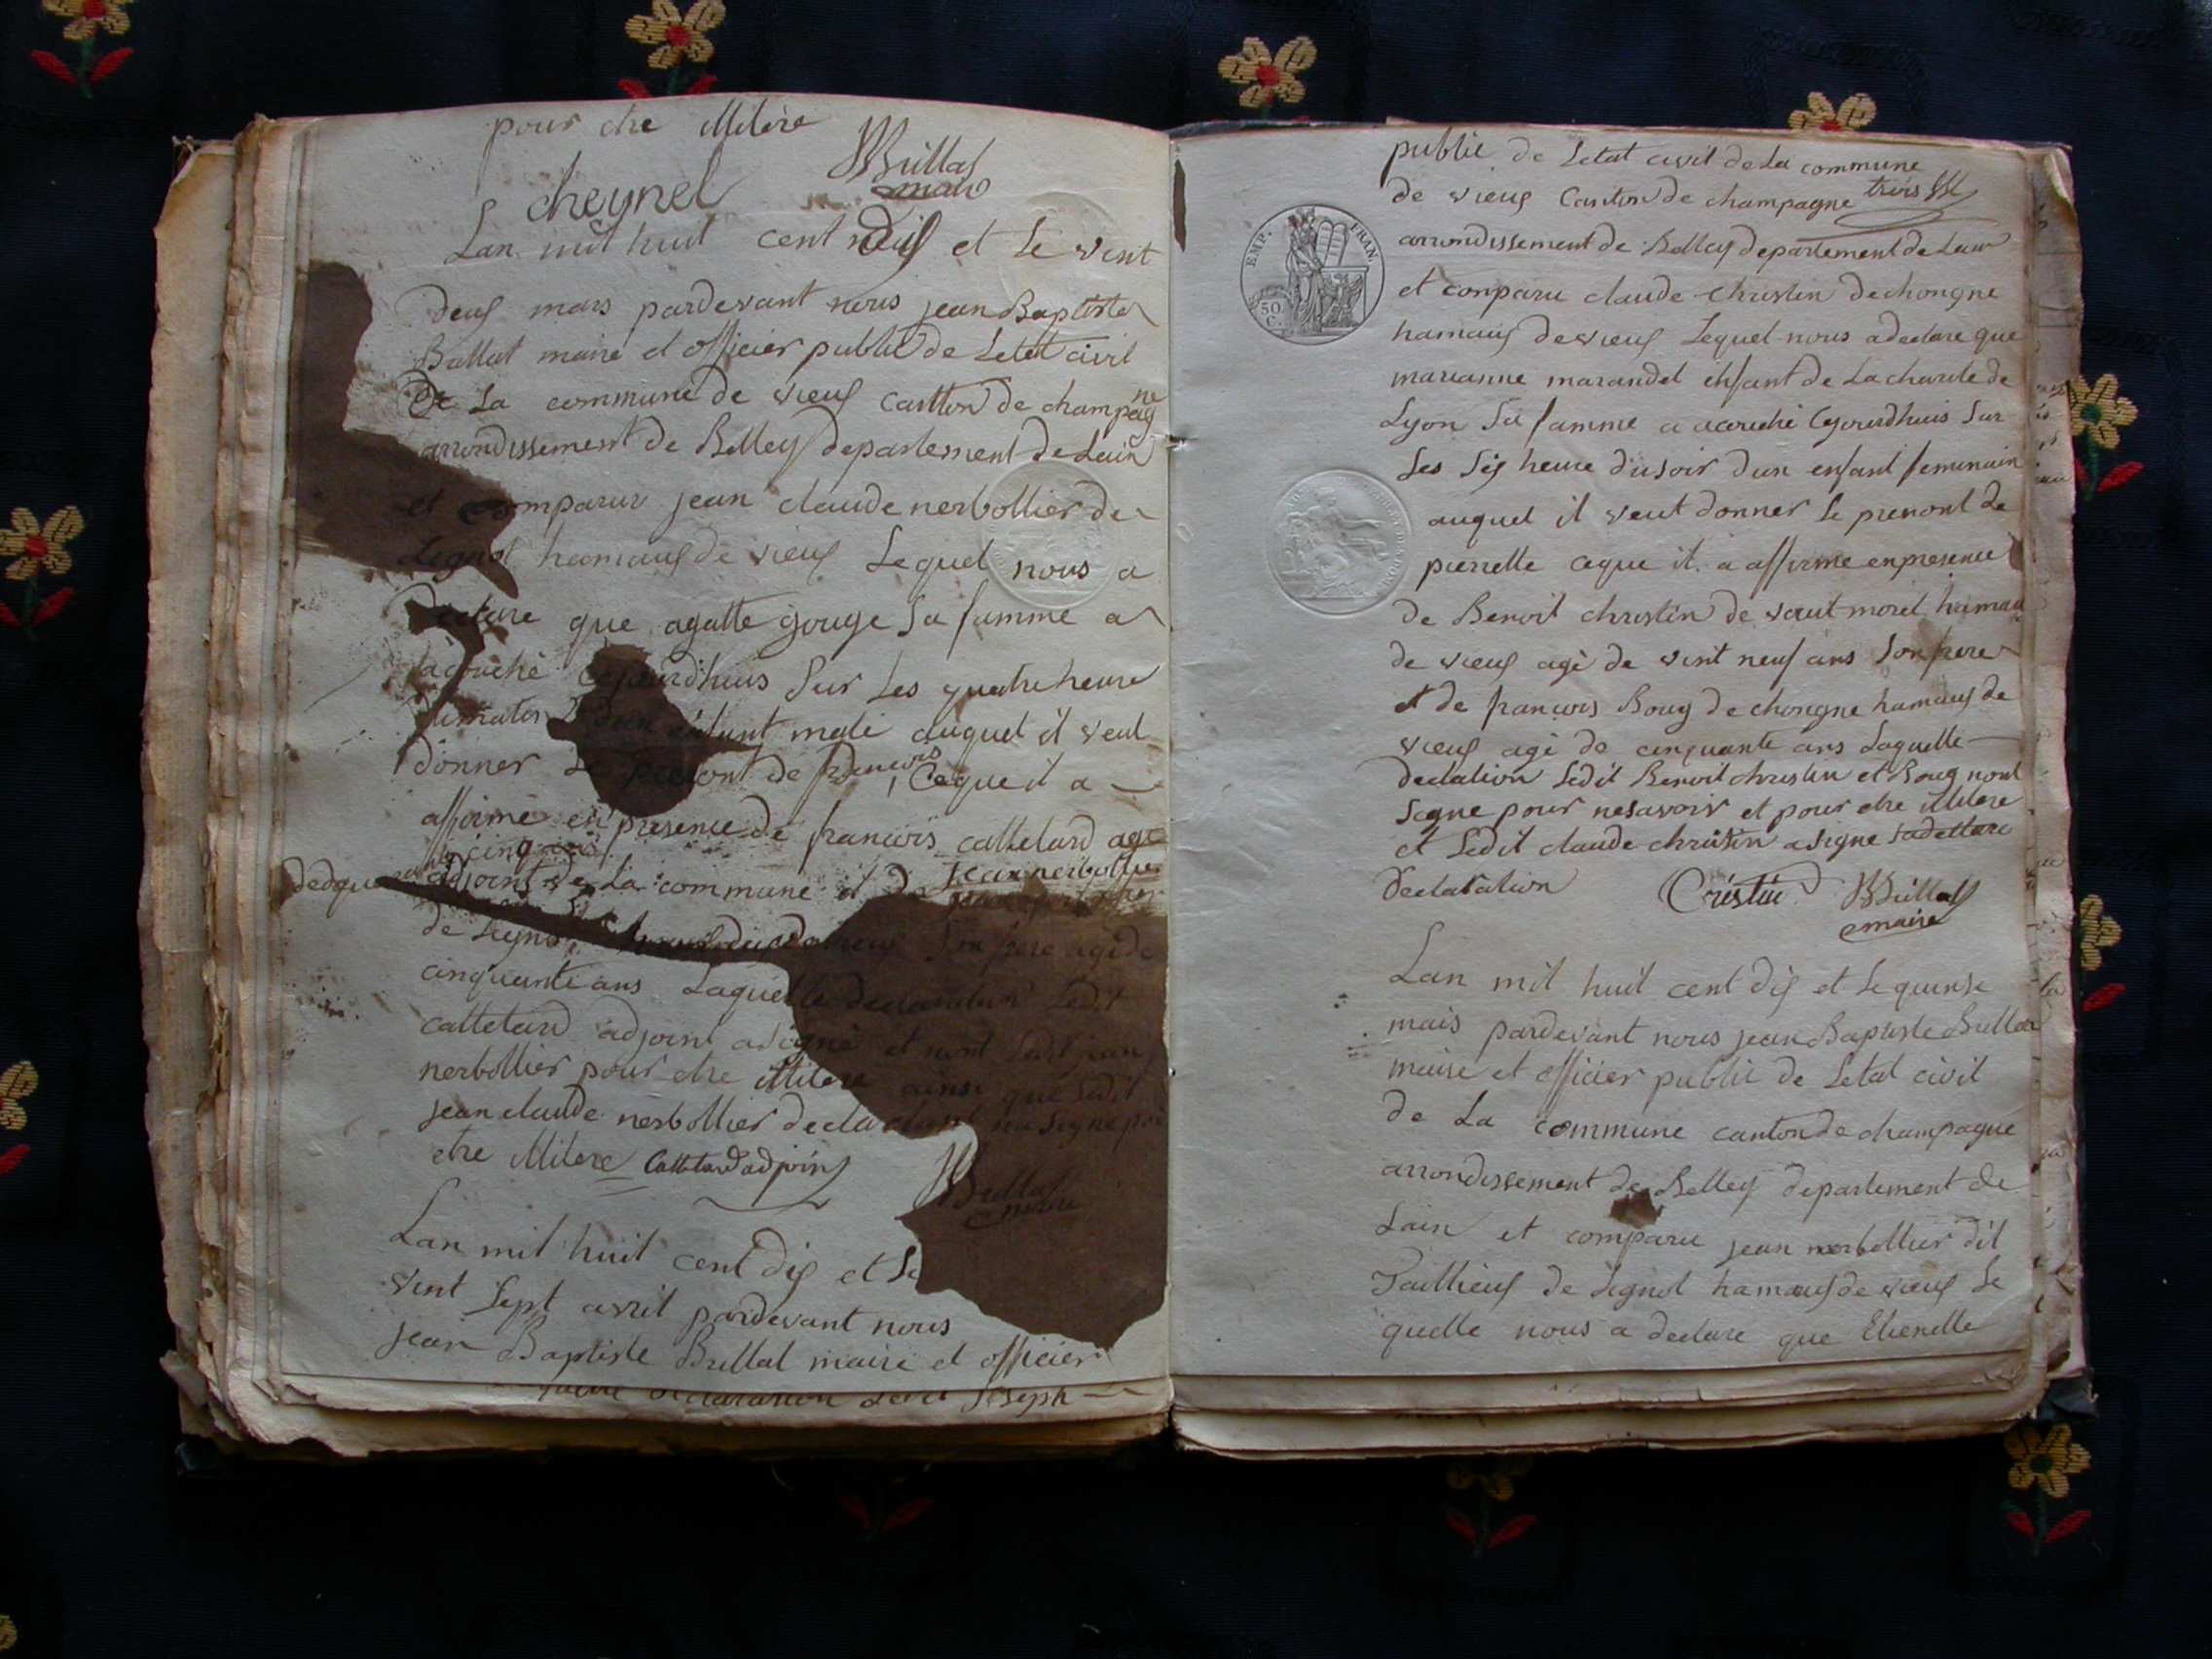 pour etre illitere
cheynel
Bullat
maire
Lan mil huit cent dix et le vint
deux mars pardevant nous jean Baptiste
Bullat maire et officier public de Letat civil
De La commune de vieux Cantton de champagne
arrondissement de Belley departement de Lain
et comparu jean claude nerbollier de
Lognol hamaux de vieux Lequel nous a
declare que agatte gouge sa famme a
acouché cejourdhuis sur Les quatre heure
dumatin dun enfant male auquel il veut
donner Le prenont de francois ceque il a
affirme en presence de francois cattelard age
cinq ans
adjoint de La commune et de jean nerbollier
de Lognol son frere agé de
cinquante ans Laquelle declaration Ledit
cattelard adjoint a signé et nont Ledit jean
nerbollier pour etre illitere ainsi que Ledit
jean claude nerbollier declarant na signe pour
etre illitere Cattelard adjoint
Bullat
maire
Lan mil huit cent dix et Le
vint sept avril pardevant nous
jean Baptiste Bullat maire et officier
declaration Joseph
public de Letat civil de La commune
de vieux Canton de champagne trois
arrondissement de Belley departement de Lain
EMP. FRAN.
50 C.
et conparu claude christin dechongne
hamaux de vieux Lequel nous a declare que
marianne marandel enfant de La charite de
Lyon sa famme a acouché cejourdhuis sur
Les six heure dusoir dun enfant feminain
auquel il veut donner Le prenont de
pierrette ceque il a affirme enpresence
de Benoit christin de vaut morel hamau
de vieux agé de vint neuf ans son frere
et de francois Bouq de chongne hamaux de
vieux agé de cinquante ans Laquelle
declation Ledit Benoit christin et Bouq nont
signe pour nesavoir et pour etre illitere
et Ledit claude christin a signe sadettare
declaration Cristin Bullat
maire
Lan mil huit cent dix et Le quinse
mais pardevant nous jean Baptiste Bullat
maire et officier public de Letat civil
de La commune canton de champagne
arrondissement de Belley departement de
Lain et comparu jean nerbollier dit
Taillieux de Lognol hamaux de vieux Le
quelle nous a declare que Etienette